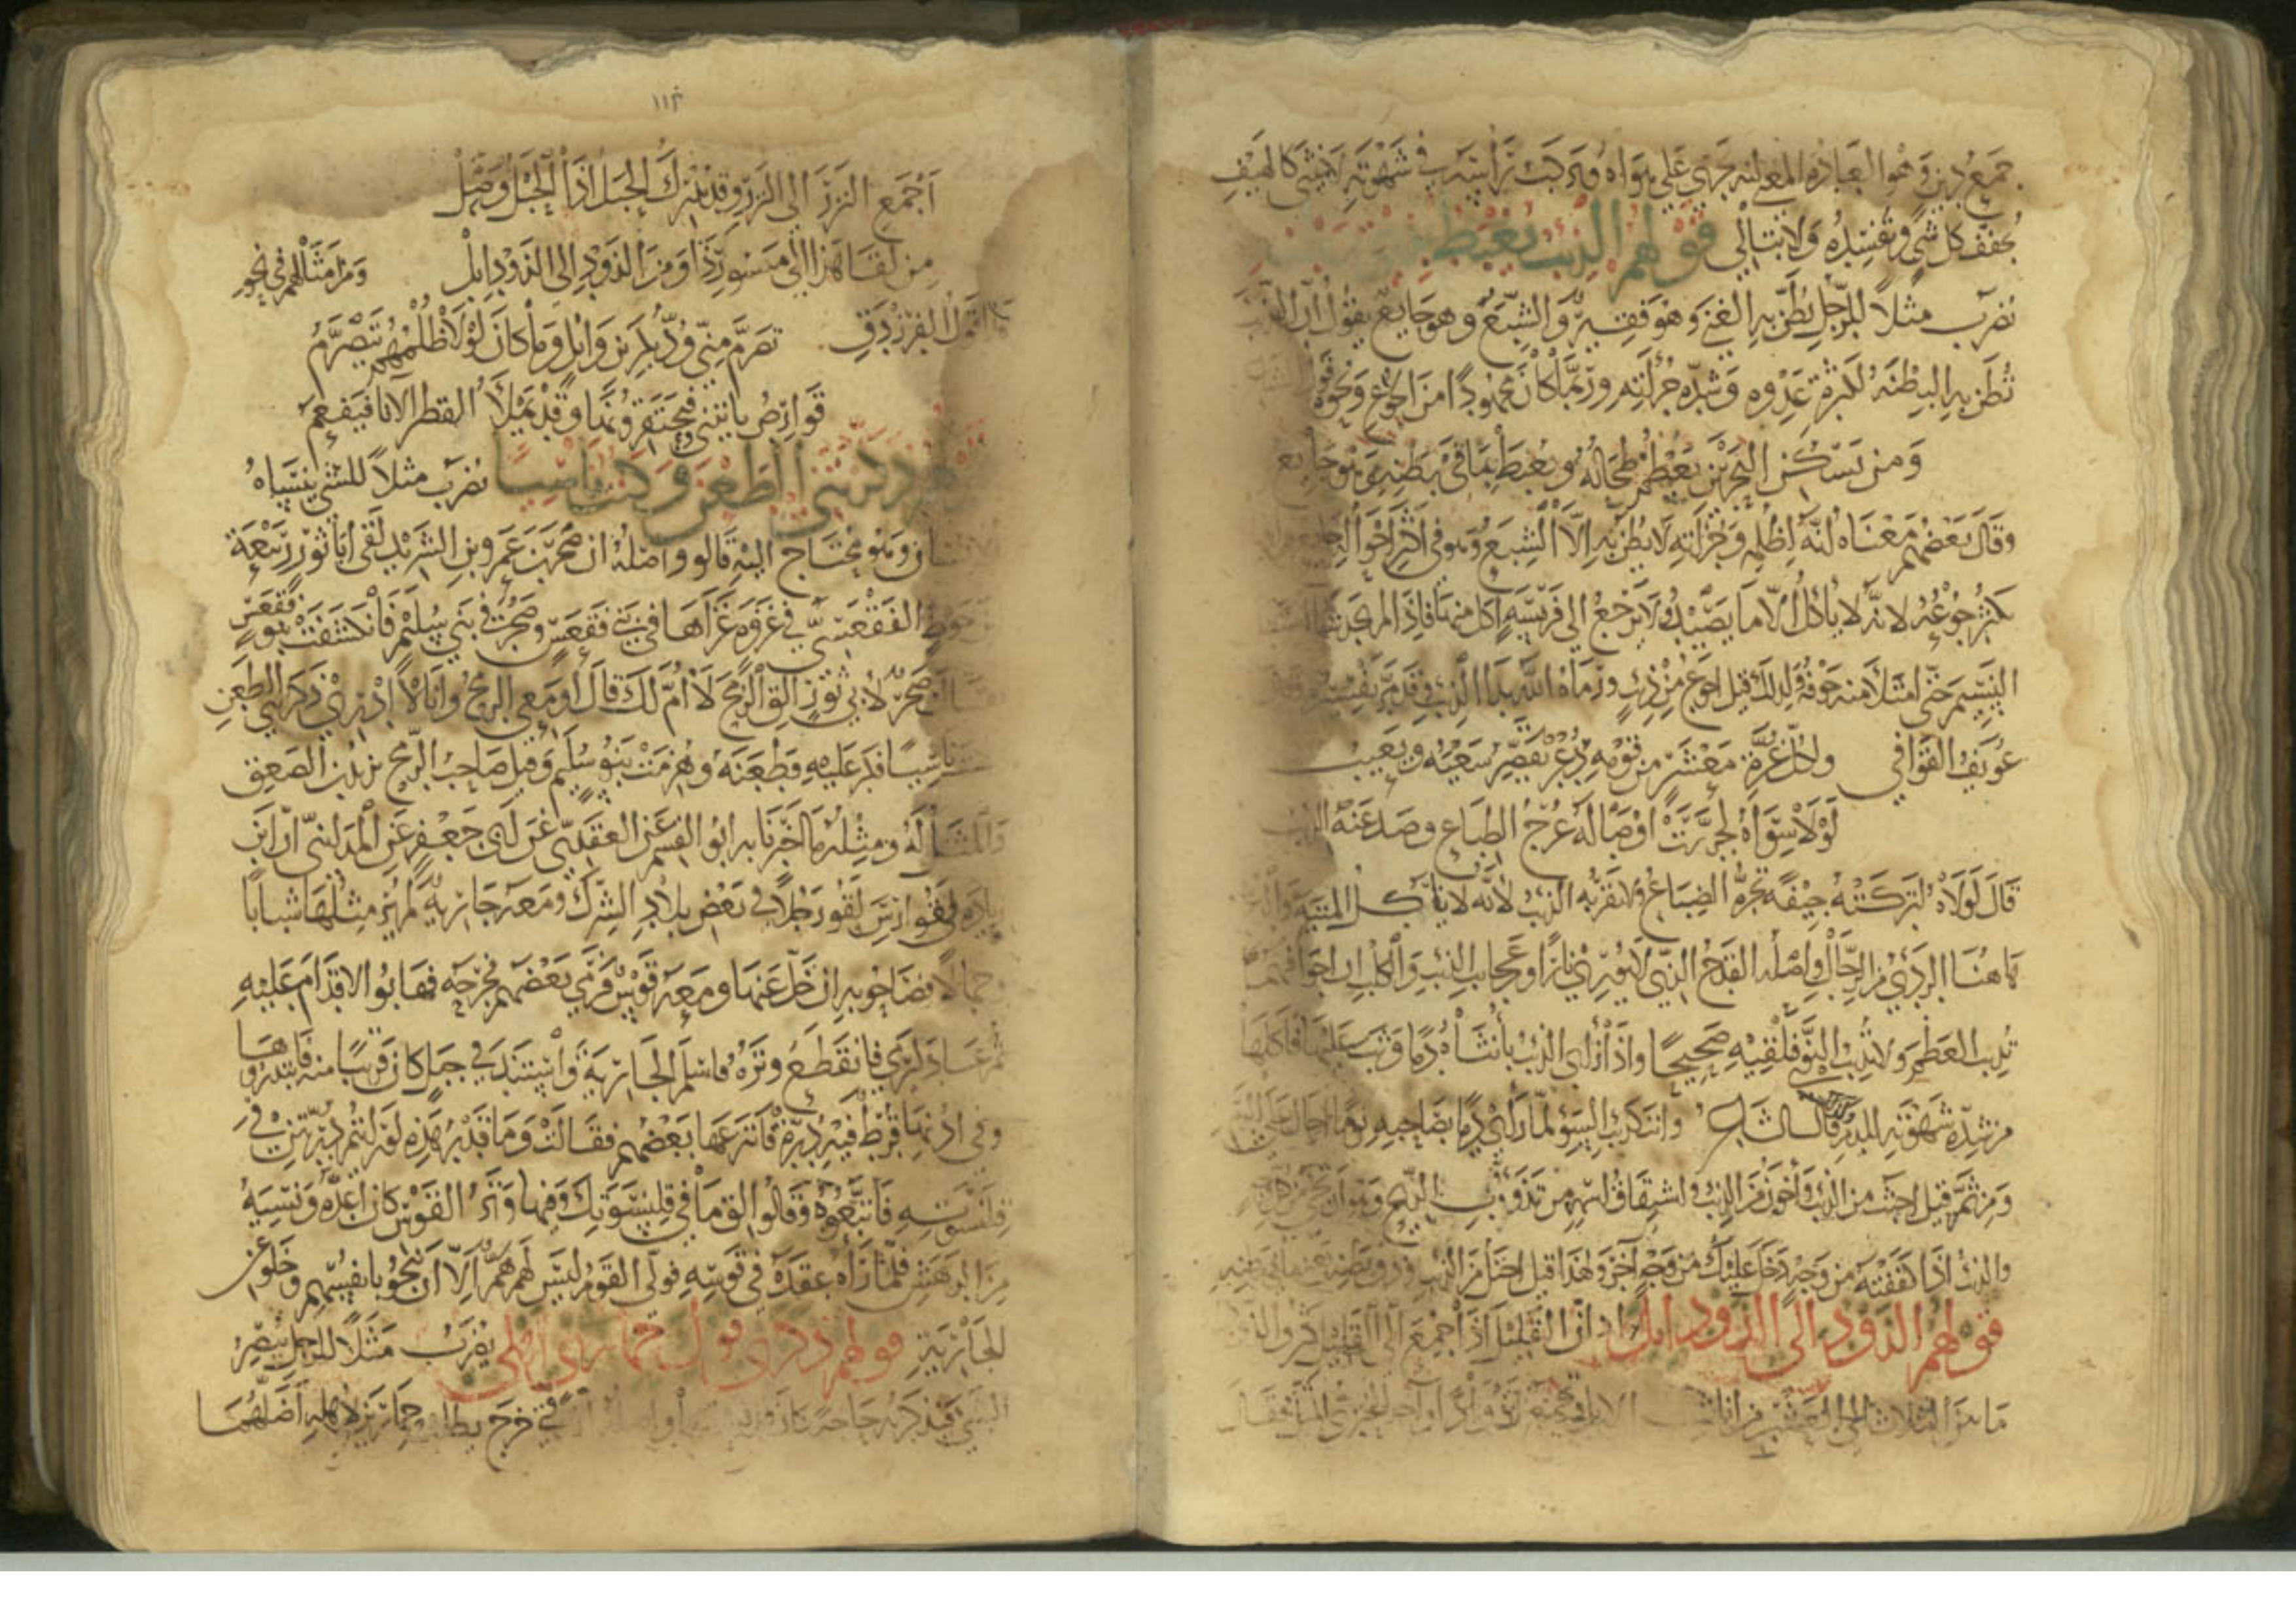 جمع دين وهو العبادة المعنى انه جرى على هواه وركب رأسه في شهوته لا يثنى كالهيف
يجفف كل شي ويفسده ولا يبالي قولهم الذئب يغبط
يضرب مثلاً للرجل يظن به الغنى وهو فقير والشبع وهو جايع يقول ان الذئب
تظن به البطنة لكثرة عدوه وشدة جرأته وربما كان مجهودًا من الجوع ونحوه
ومن يسكن البحرين يعظم طحاله ويغبط بما في بطنه وهو جايع
وقال بعضهم معناه انه لظلمه وجرأته لا يظن به الا الشبع وهو في اكثر احواله جايع
يكثر جوعه لانه لا ياكل الا ما يصيده ولا يرجع الى فريسة اكل منها فاذا لم يجد شيا استنشق
النسيم حتى امتلا منه جوفه ولذلك قيل اجوع من ذئب ورماه الله بداء الذئب وقد مر تفسيره وقال
عويف القوافي ولكل غرة معشر من قومه دعر يقصر سعيه ويعيب
لولا سواه لجررت اوصاله عرج الضباع وصد عنه الذئب
قال لولاه لتركته جيفة تجره الضباع ولا يقربه الذئب لانه لا ياكل الميتة والدعر
هاهنا الردي من الرجال واصله القدح الذي لا يوري نارًا وعجايب الذئب والكلب ان اجوافهما
تذيب العظم ولا تذيب النوى فتلقيه صحيحًا واذا راى الذئب بانثاه دمًا وثب عليها فاكلها
من شدة شهوته للدم قال الشاعر وانت كذئب السوء لما راى دمًا بصاحبه يومًا احال على الدم
ومن ثم قيل اخبث من الذئب واخون من الذئب واشتقاق اسمه من تذؤب الريح وهو ان تجي من كل
والذئب اذا كففته من وجه دخل عليك من وجه آخر ولهذا قيل اختل من الذئب
قولهم الذود الى الذود ابل يراد ان القليل اذا جمع الى القليل كثر والذود
ما بين الثلاث الى العشر من اناث الابل
اجمع النزر الى النزر وقد يدرك الحبل اذا الحبل وصل
من لقا هذا الى ميسور ذا ومن الذود الى الذود ابل ومن امثالهم في نحو
هذا قول الفرزدق تصرم مني ود بكر بن وائل وما كان لولا ظلمهم يتصرم
قوارص ياتيني فيحتقرونها وقد يملا القطر الانا فيفعم
قولهم ذكرتني الطعن وكنت ناسيا يضرب مثلاً للشي ينساه
الانسان وهو محتاج اليه قالوا واصله ان صخر بن عمرو بن الشريد لقى ابا ثور ربيعة
بن حوط الفقعسي في غزوة غزاها في بني فقعس وصخر في بني سليم فانكشفت بنو فقعس
فقال صخر لابي ثور الق الرمح لا ام لك قال اومعي الرمح وانا لا ادري ذكرتني الطعن
وكنت ناسيا فكر عليه فطعنه وهزمت بنو سليم وقيل صاحب الرمح يزيد بن الصعق
والمثل له ومثله ما اخبرنا به ابو القسم عن العقدي عن ابي جعفر عن المدايني ان ابن
بيادة في فوارس لقو رجلاً في بعض بلاد الشرك ومعه جارية لم ير مثلها شبابًا
وجمالاً فصاحو به ان خل عنها ومعه قوس فرمي بعضهم فجرحه فهابوا الاقدام عليه
ثم عاد ليرمي فانقطع وتره فاسلم الجارية واستند في جبل كان قريبًا منه فابتدروها
وفي اذنها قرط فيه درة فانتزعها بعضهم فقالت وما قدر هذه لو رايتم درتين في
قلنسوته فاتبعوه وقالوا الق ما في قلنسوتك وفيها وتر القوس كان اعده ونسيه
من الدهش فلما رآه عقده في قوسه فولى القوم ليس لهم هم الا ان ينجو بانفسهم وخلو عن
الجارية قولهم ذكرني فوك حماري اهلي يضرب مثلاً للرجل يبصر
الشي فيذكر به حاجة كان قد نسيها واصله ان فتى خرج يطلب حمارين لاهله اضلهما